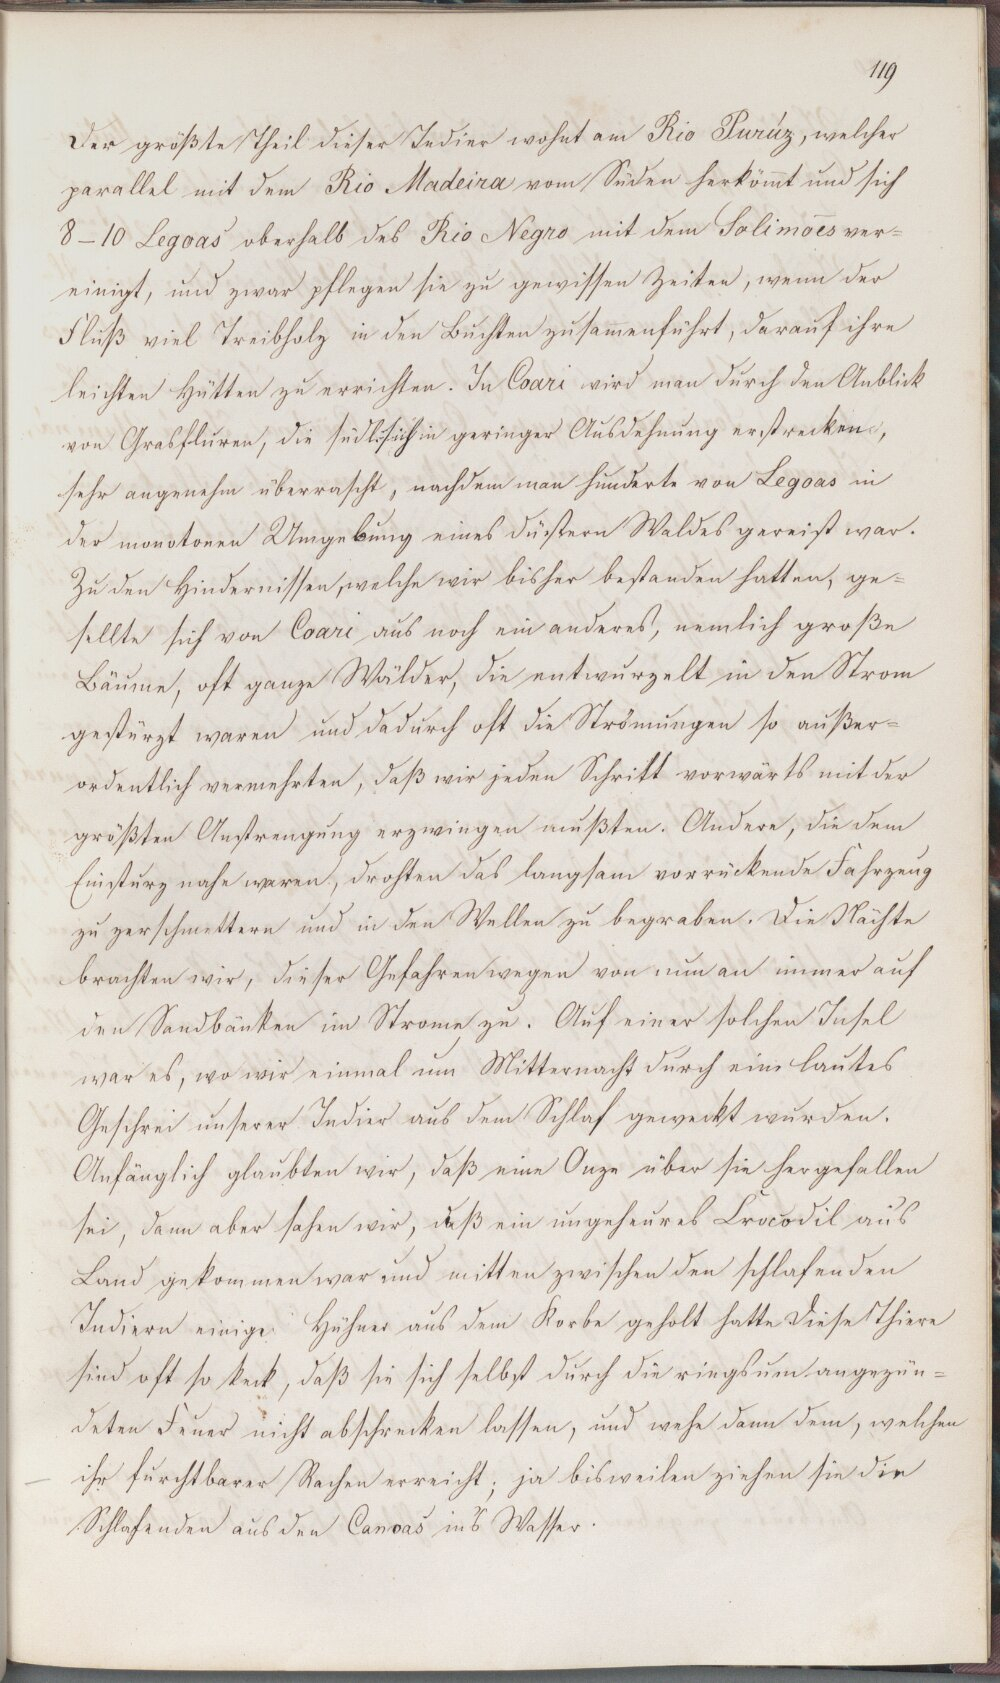 119
Der größte Theil dieser Indier wohnt am Rio Purúz, welcher
parallel mit dem Rio Madeira vom Süden herkömmt und sich
8–10 Legoas oberhalb des Rio Negro mit dem Solimoēs ver=
einigt, und zwar pflegen sie zu gewissen Zeiten, wenn der
Fluß viel Treibholz in den Buchten zusammenführt, darauf ihre
leichten Hütten zu errichten. In Coari wird man durch den Anblick
von Grasfluren, die südl. sich in geringer Ausdehnung erstrecken,
sehr angenehm überrascht, nachdem man hunderte von Legoas in
der monotonen Umgebung eines düstern Waldes gereist war.
Zu den Hindernissen, welche wir bisher bestanden hatten, ge=
sellte sich von Coari aus noch ein anderes, nemlich große
Bäume, oft ganze Wälder, die entwurzelt in den Strom
gestürzt waren und dadurch oft die Strömungen so außer=
ordentlich vermehrten, daß wir jeden Schritt vorwärts mit der
größten Anstrengung erzwingen mußten. Andere, die dem
Einsturz nahe waren, drohten das langsam vorrückende Fahrzeug
zu zerschmettern und in den Wellen zu begraben. Die Nächte
brachten wir, dieser Gefahren wegen von nun an immer auf
den Sandbänken im Strome zu. Auf einer solchen Insel
war es, wo wir einmal um Mitternacht durch ein lautes
Geschrei unserer Indier aus dem Schlaf geweckt wurden.
Anfänglich glaubten wir, daß eine Onze über sie hergefallen
sei, dann aber sahen wir, daß ein ungeheures Crocodil aus
Land gekommen war und mitten zwischen den schlafenden
Indiern einige Hühner aus dem Korbe geholt hatte Diese Thiere
sind oft so keck, daß sie sich selbst durch die ringsum angezün=
deten Feuer nicht abschrecken lassen, und wehe dann dem, welchen
ihr furchtbarer Rachen erreicht; ja bisweilen ziehen sie die
Schlafenden aus den Canoas in's Wasser.